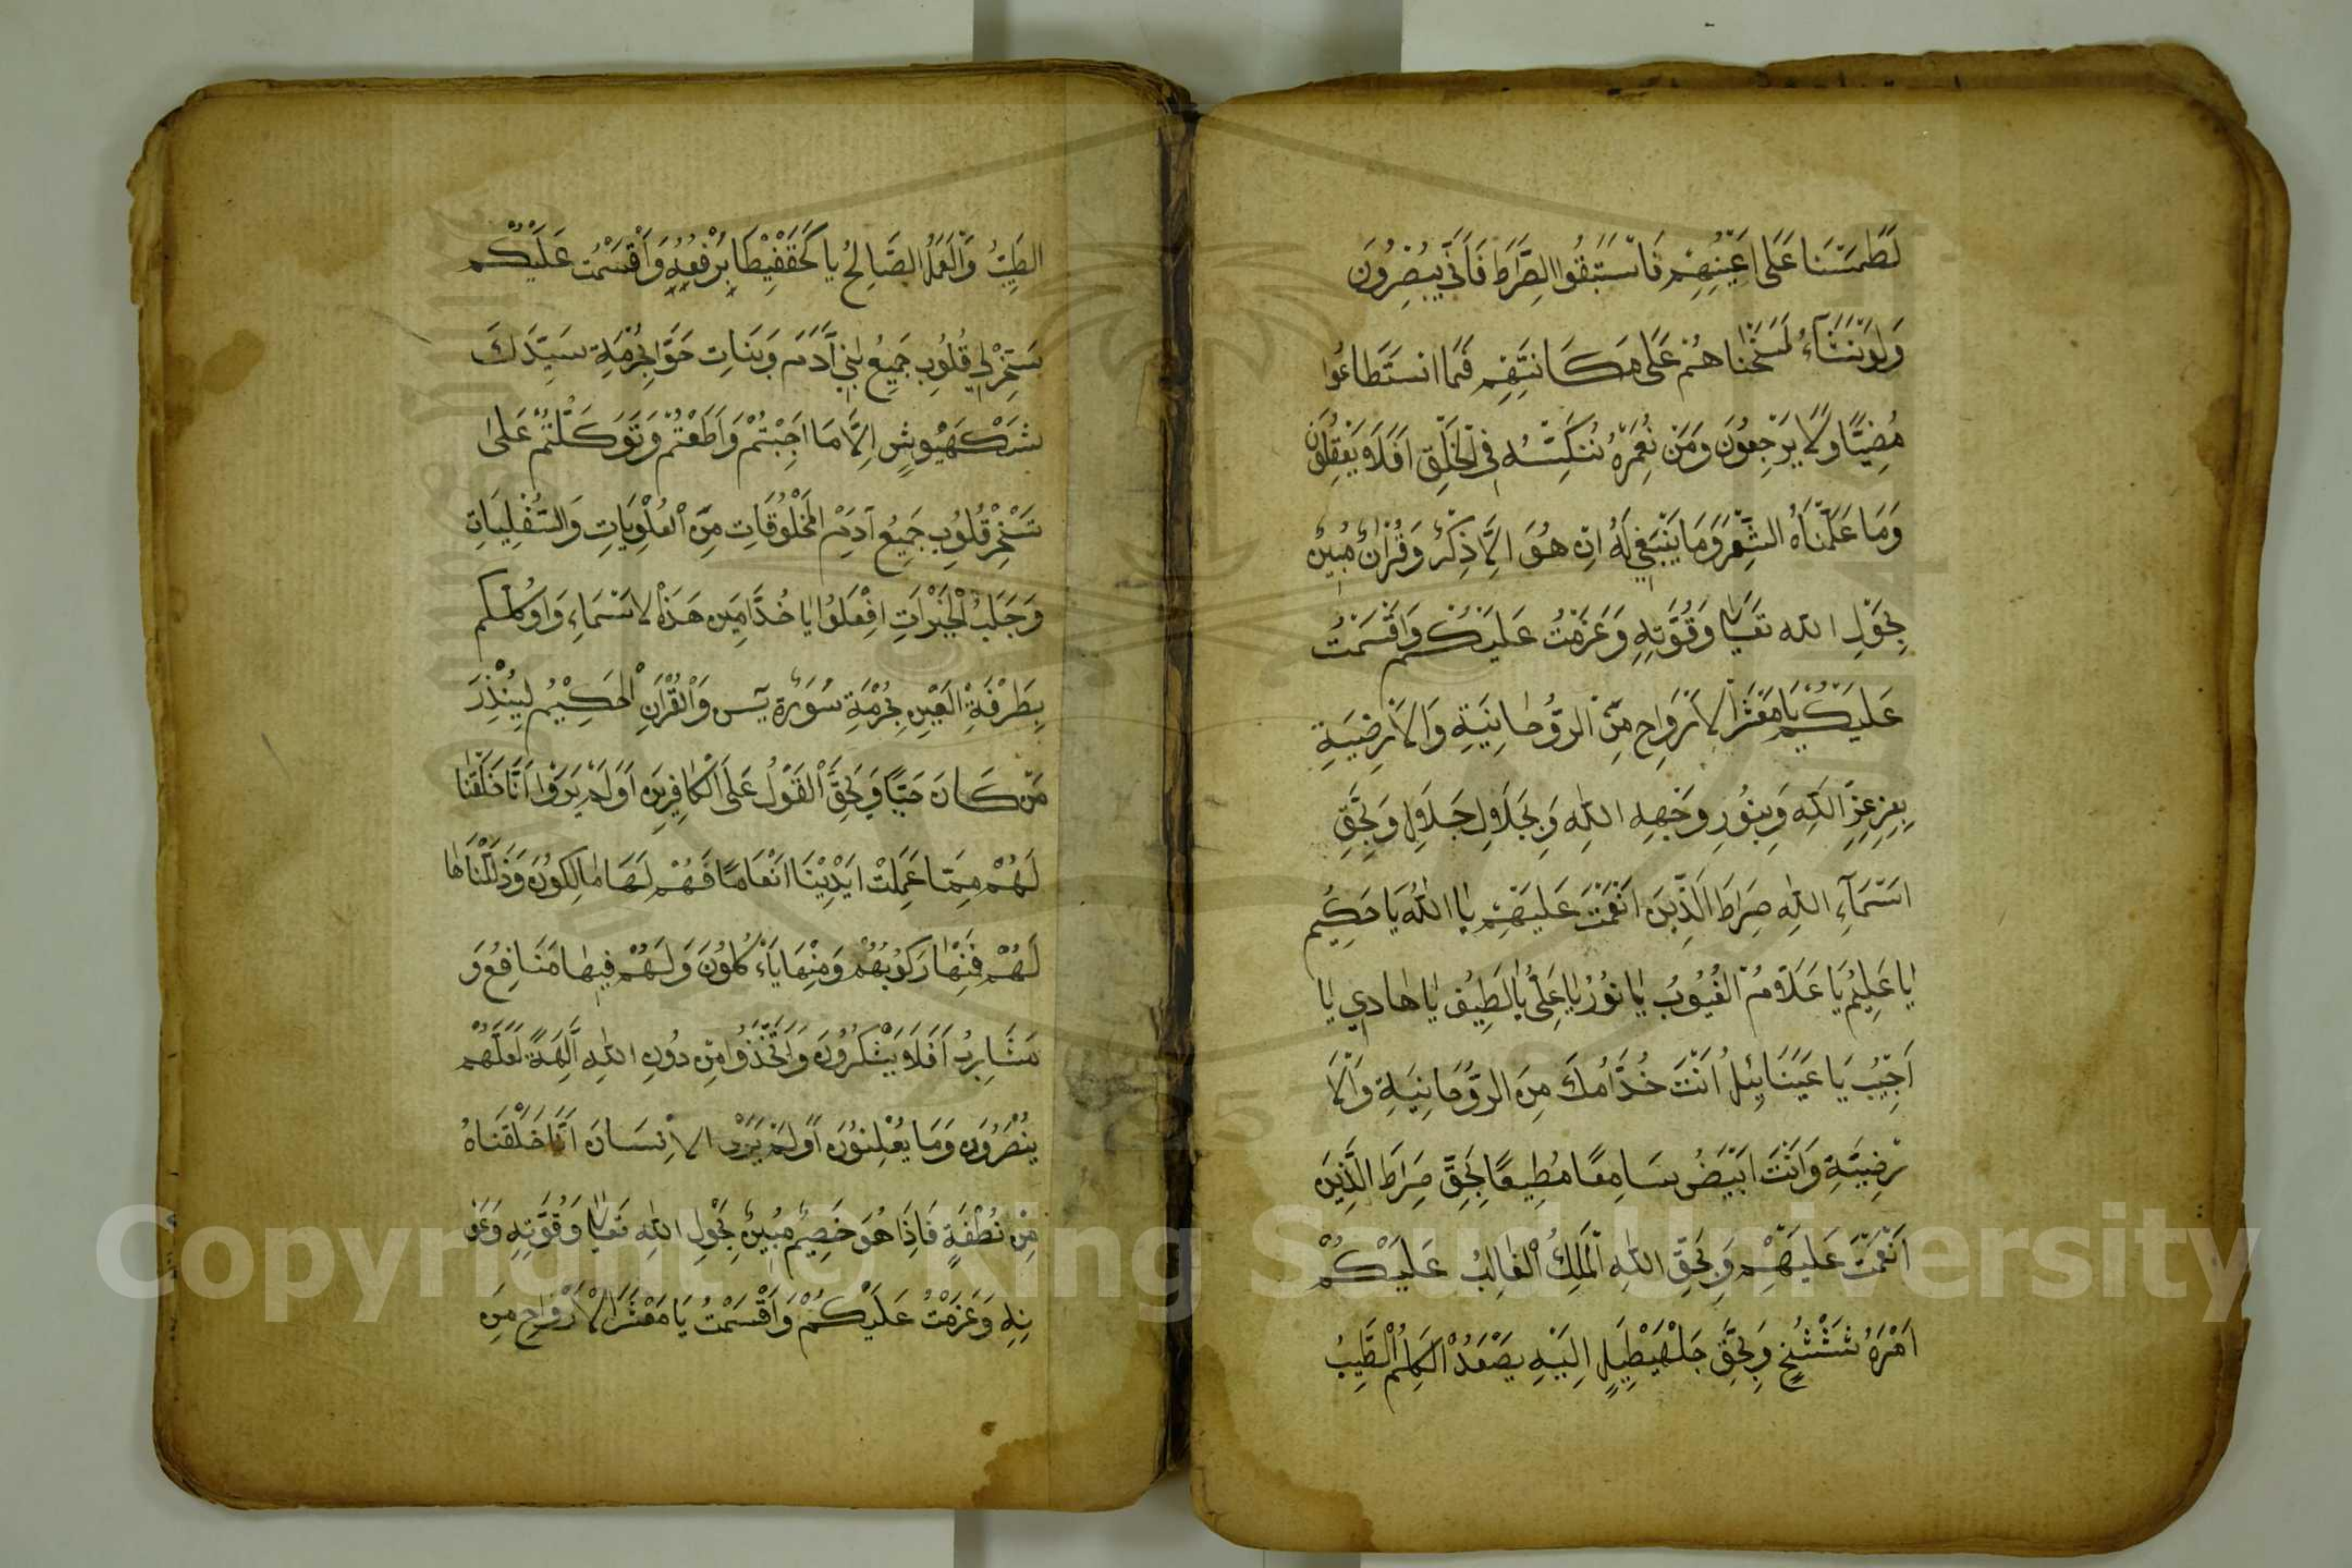 لَطَمَسْنَا عَلَى اَعْيُنِهِمْ فَاسْتَبَقُوا الصِّرَاطَ فَاَنَّى يُبْصِرُونَ
وَلَوْ نَشَآءُ لَمَسَخْنَاهُمْ عَلَى مَكَانَتِهِمْ فَمَا اسْتَطَاعُوا
مُضِيًّا وَلَا يَرْجِعُونَ وَمَنْ نُعَمِّرْهُ نُنَكِّسْهُ فِى الْخَلْقِ اَفَلَا يَعْقِلُونَ
وَمَا عَلَّمْنَاهُ الشِّعْرَ وَمَا يَنْبَغِى لَهُ اِنْ هُوَ اِلَّا ذِكْرٌ وَقُرْاٰنٌ مُبِينٌ
بِحَوْلِ اللّٰه تَعَالٰى وَقُوَّتِهِ وَعَزَمْتُ عَلَيْكُمْ وَاَقْسَمْتُ
عَلَيْكُمْ يَا مَعْشَرَ الْاَرْوَاحِ مِنَ الرُّوحَانِيَةِ وَالْاَرْضِيَةِ
بِعِزِ عِزِّ اللّٰهِ وَبِنُورِ وَجْهِهِ اللّٰهِ وَبِجَلَالِ جَلَالِ وَبِحَقِّ
اَسْمَآءِ اللّٰهِ صِرَاطَ الَّذِينَ اَنْعَمْتَ عَلَيْهِمْ يَا اَللّٰهُ يَا حَكِيمُ
يَا عَلِيمُ يَا عَلَّامُ الْغُيُوبُ يَا نُورُ يَا عَلِىُّ يَا لَطِيفُ يَا هَادِي يَا
اَجِيْبُ يَا عَيْنَائِيلُ اَنْتَ خُدَّامُكَ مِنَ الرُّوحَانِيَةِ وَالْاَ
رْضِيَّةِ وَاَنْتَ اَبْيَضُ سَامِعًا مُطِيعًا بِحَقِّ صِرَاطَ الَّذِينَ
اَنْعَمْتَ عَلَيْهِمْ وَبِحَقِّ اللّٰهِ الْمَلِكُ الْغَالِبُ عَلَيْكُمْ
اَمْرَهُ وَبِحَقِّ اِلَيْهِ يَصْعَدُ الْكَلِمُ الطَّيِّبُ
الطَيِّبُ وَالْعَمَلُ الصَّالِحُ يَا يَرْفَعُهُ وَاَقْسَمْتُ عَلَيْكُمْ
قُلُوبِ جَمِيعُ بَنِي آدَمَ وَبَنَاتِ حَوَّا بِحُرْمَةِ سَيِّدَكَ
اِلَّا مَا اَجَبْتُمْ وَاَطَعْتُمْ وَتَوَكَّلْتُمْ عَلٰى
تَسْخِرْ قُلُوبِ جَمِيعُ الْمَخْلُوقَاتِ مِنَ الْعُلْوِيَاتِ وَالسُّفْلِيَاتِ
وَجَلْبِ الْخَيْرَاتِ اِفْعَلُوا يَا خُدَّامِينَ هَذَا الْاَسْمَاءِ
بِطَرْفَةِ الْعَيْنِ بِحُرْمَةِ سُورَةِ يٰسٓ وَالْقُرْاٰنِ الْحَكِيْمِ لِيُنْذِرَ
مَنْ كَانَ حَيًّا وَيَحِقَّ الْقَوْلُ عَلَى الْكَافِرِينَ اَوَلَمْ يَرَوْا اَنَّا خَلَقْنَا
لَهُمْ مِمَّا عَمِلَتْ اَيْدِيْنَا اَنْعَامًا فَهُمْ لَهَا مَالِكُونَ وَذَلَّلْنَاهَا
لَهُمْ فَمِنْهَا رَكُوبُهُمْ وَمِنْهَا يَاْءْكُلُونَ وَلَهُمْ فِيهَا مَنَافِعُ وَ
مَشَارِبُ اَفَلَا يَشْكُرُونَ وَاتَّخَذُوا مِنْ دُونِ اللّٰهِ اٰلِهَةً لَعَلَّهُمْ
يُنْصَرُونَ وَمَا يُعْلِنُونَ اَوَلَمْ يَرَ الْاِنْسَانَ اَنَّا خَلَقْنَاهُ
مِنْ نُطْفَةٍ فَاِذَا هُوَ خَصِيمٌ مُبِينٌ بِحَوْلِ اللّٰهِ تَعَالٰى وَقُوَّتِهِ وَعَوْ
نِهِ وَعَزَمْتُ عَلَيْكُمْ وَاَقْسَمْتُ يَا مَعْشَرَ الْاَرْوَاحِ مِنَ
Copyright © King Saud University